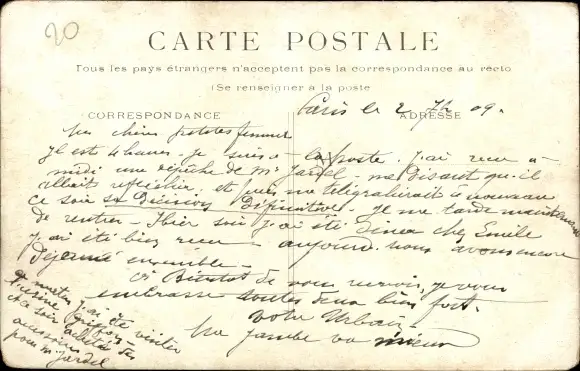 20
CARTE POSTALE
Tous les pays étrangers n'acceptent pas la correspondance au recto
(Se renseigner à la poste
CORRESPONDANCE
ADRESSE
Paris le 2 7bre 09.
Mes chères petites femmes
Il est 4 heures. je suis à la poste. J'ai reçu à
midi une dépêche de Mr Jardel - me disant qu'il
allait réfléchir et puis me télégraphierait à nouveau
ce soir sa Décision Définitive. Il me tarde maintenant
de rentrer - Hier soir j'ai été Diner chez Emile
J'ai été bien reçu - aujourd. nous avons encore
Déjeuné ensemble -
Bientot de vous revoir, je vous
embrasse toutes deux bien fort.
Votre Urbain
Ma jambe va mieux
matin j'ai été visiter
l'usine Griffon
ce soir acheter des
pour Mr Jardel